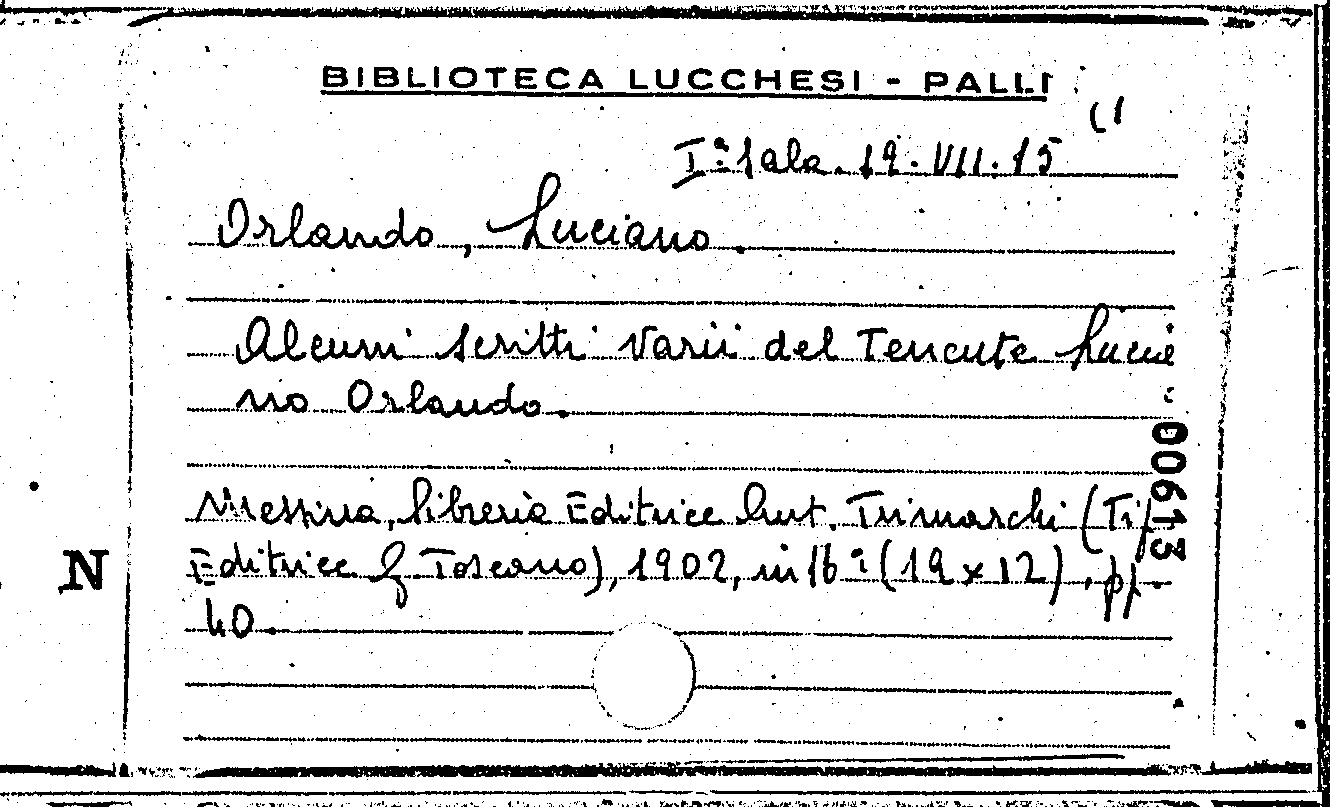 BIBLIOTECA LUCCHESI - PALLI
(1
Iª Sala. 19. VII. 15
Orlando, Luciano.
Alcuni scritti varii del Tenente Lucia
no Orlando.
Messina, Libreria Editrice Ant. Trimarchi (Tip.
Editrice G. Toscano), 1902, in 16º (19 x 12), pp.
40.
00613
N